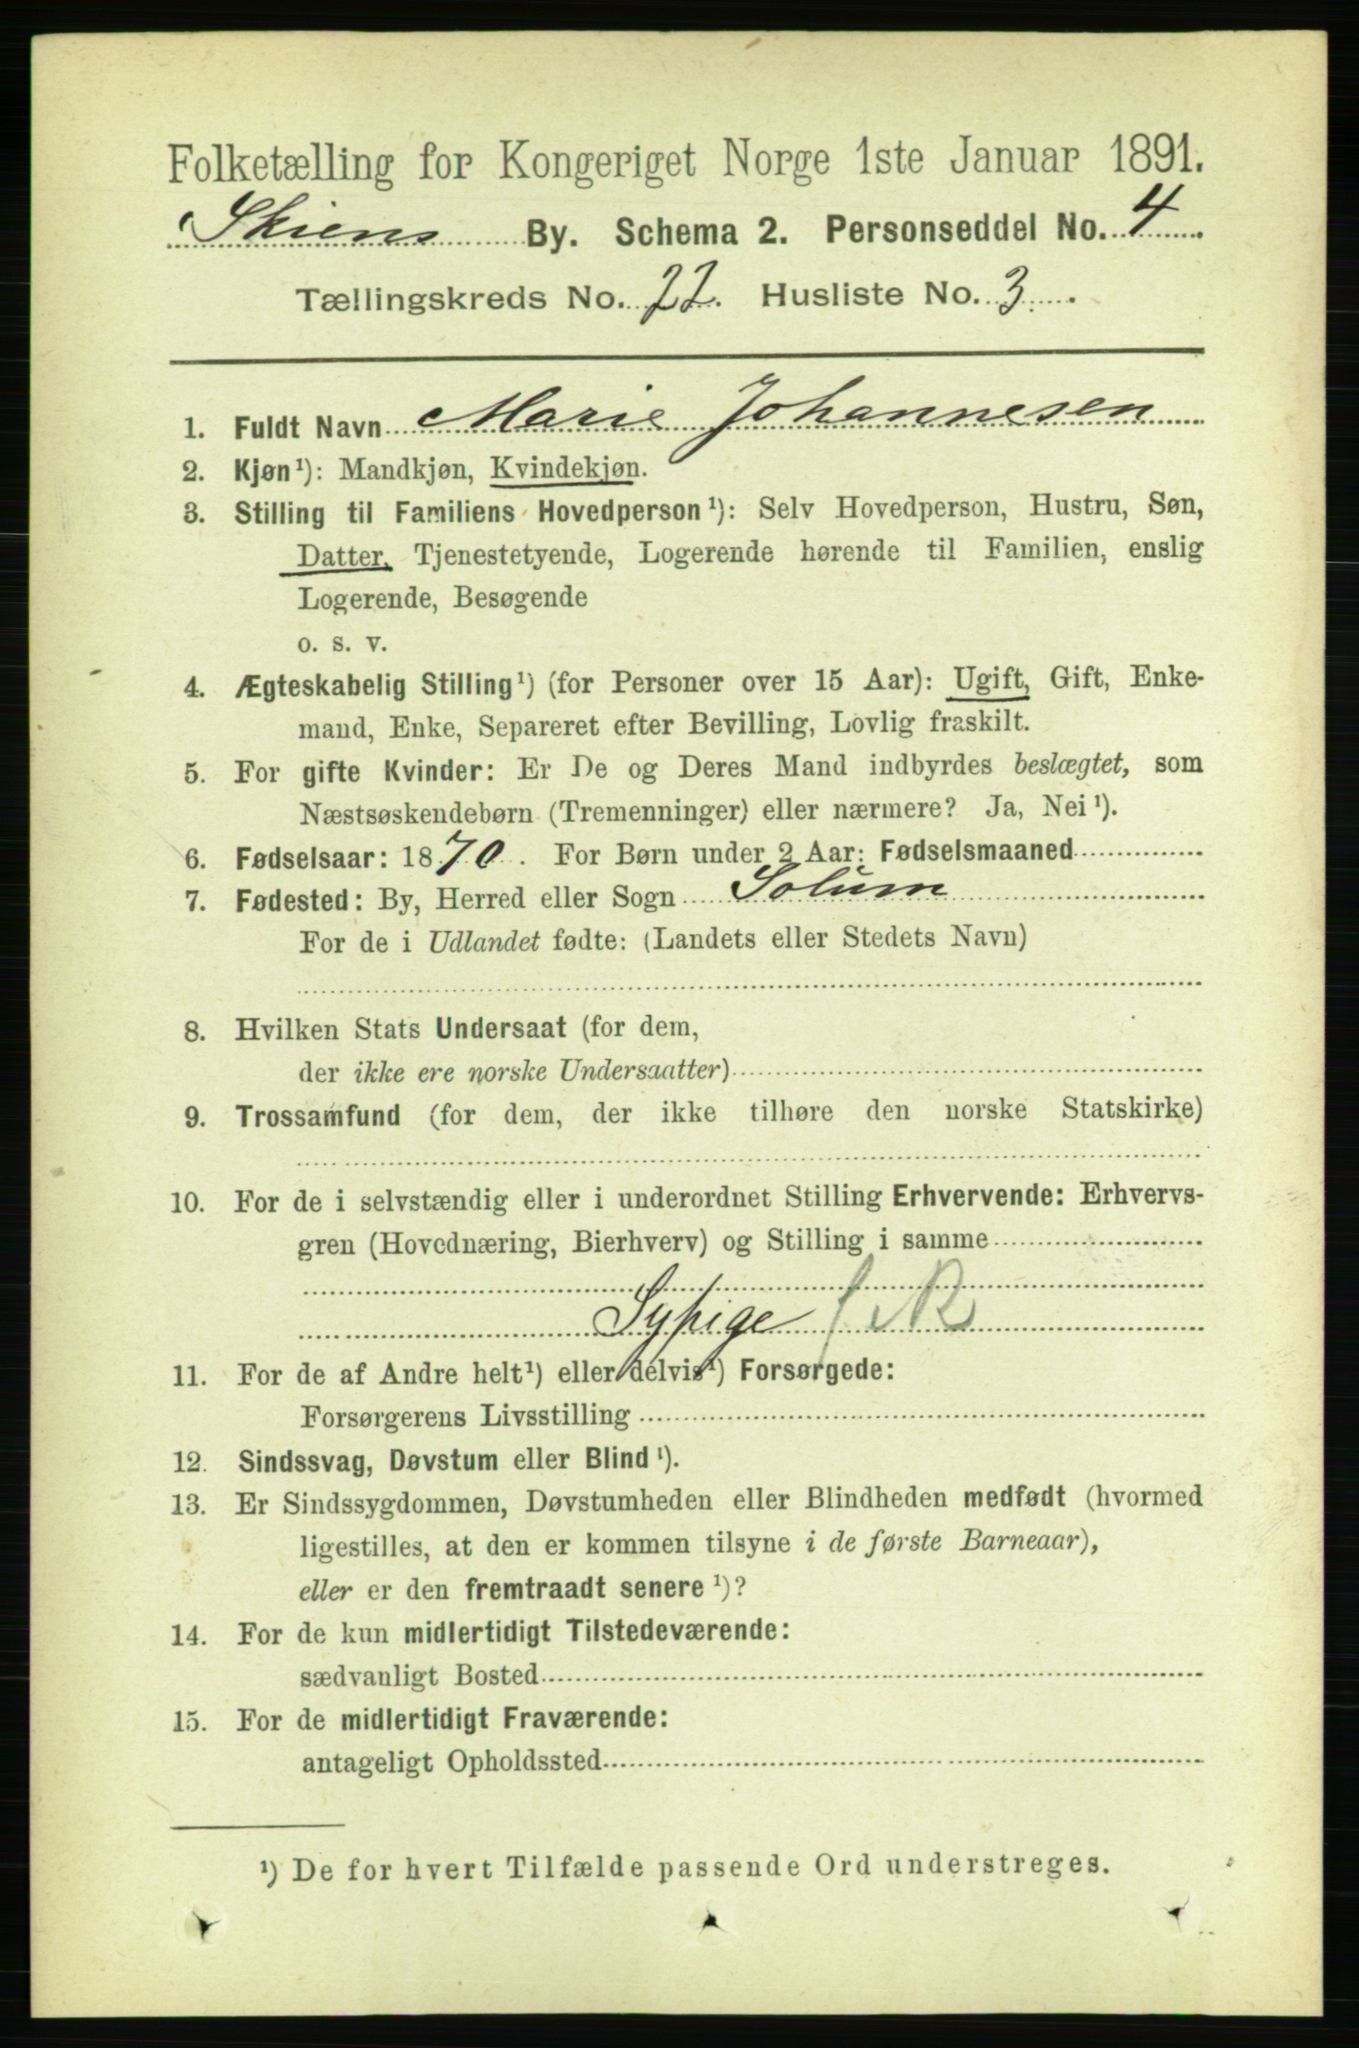 Folketælling for Kongeriget Norge 1ste Januar 1891.
Skiens By. Schema 2. Personseddel No. 4
Tællingskreds No. 22. Husliste No. 3.
1. Fuldt Navn Marie Johannesen
2. Kjøn¹): Mandkjøn, Kvindekjøn.
3. Stilling til Familiens Hovedperson¹): Selv Hovedperson, Hustru, Søn,
Datter, Tjenestetyende, Logerende hørende til Familien, enslig
Logerende, Besøgende
o. s. v.
4. Ægteskabelig Stilling¹) (for Personer over 15 Aar): Ugift, Gift, Enke-
mand, Enke, Separeret efter Bevilling, Lovlig fraskilt.
5. For gifte Kvinder: Er De og Deres Mand indbyrdes beslægtet, som
Næstsøskendebørn (Tremenninger) eller nærmere? Ja, Nei¹).
6. Fødselsaar: 1870. For Børn under 2 Aar: Fødselsmaaned
7. Fødested: By, Herred eller Sogn Solum
For de i Udlandet fødte: (Landets eller Stedets Navn)
8. Hvilken Stats Undersaat (for dem,
der ikke ere norske Undersaatter)
9. Trossamfund (for dem, der ikke tilhøre den norske Statskirke)
10. For de i selvstændig eller i underordnet Stilling Erhvervende: Erhvervs-
gren (Hovednæring, Bierhverv) og Stilling i samme
Sypige
11. For de af Andre helt¹) eller delvis¹) Forsørgede:
Forsørgerens Livsstilling
12. Sindssvag, Døvstum eller Blind¹).
13. Er Sindssygdommen, Døvstumheden eller Blindheden medfødt (hvormed
ligestilles, at den er kommen tilsyne i de første Barneaar),
eller er den fremtraadt senere¹)?
14. For de kun midlertidigt Tilstedeværende:
sædvanligt Bosted
15. For de midlertidigt Fraværende:
antageligt Opholdssted
¹) De for hvert Tilfælde passende Ord understreges.